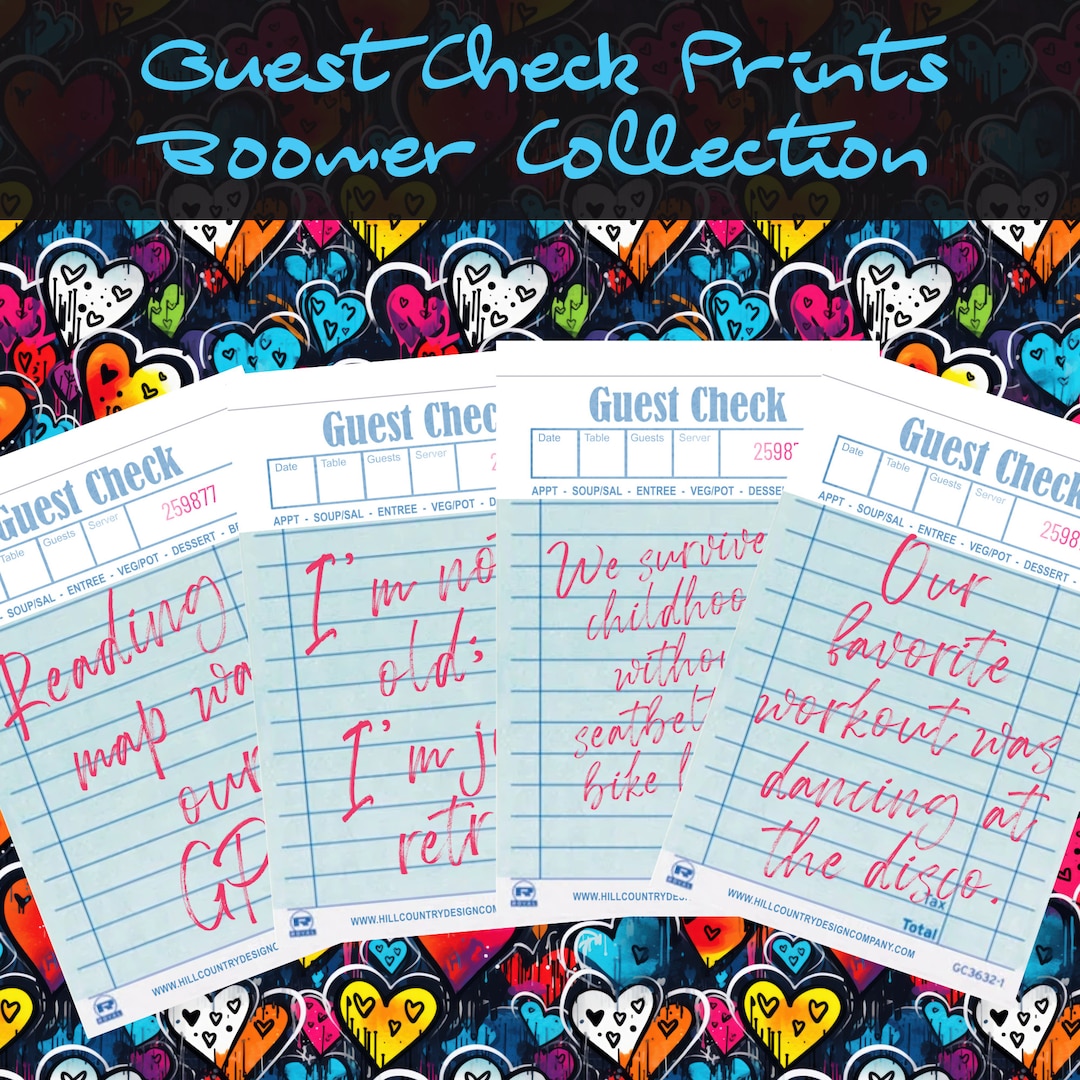 Guest Check Prints
Boomer Collection
Guest Check
Table Guests Server
259877
SOUP/SAL - ENTREE - VEG/POT - DESSERT -
Reading
map
our
WWW.HILLCOUNTRYDESIGN
Guest Check
Date Table Guests Server
APPT - SOUP/SAL - ENTREE - VEG/POT -
I'm
old;
I'm
ROYAL
WWW.HILLCOUNTRYDESIGNCOM
Guest Check
Date Table Guests Server
2598
APPT - SOUP/SAL - ENTREE - VEG/POT - DESSE
We
seatbelt
bike
ROYAL
WWW.HILLCOUNTRYDES
Guest Check
Date Table Guests Server
2598
APPT - SOUP/SAL - ENTREE - VEG/POT - DESSERT -
Our
favorite
workout was
dancing at
the disco.
Tax
Total
ROYAL
WWW.HILLCOUNTRYDESIGNCOMPANY.COM
GC3632-1